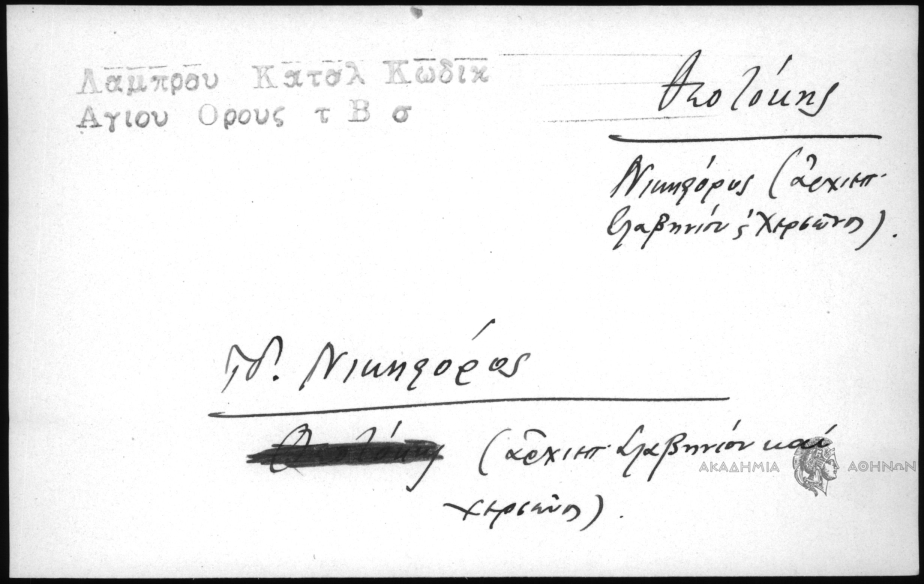 Λαμπρου Καταλ Κωδικ
Αγιου Ορους τ Β σ
Θεοτόκης
Νικηφόρος (ἀρχιεπ.
Σλαβηνίου ς Χερσῶνος).
Ἰδ. Νικηφόρος
Θεοτόκης (ἀρχιεπ. Σλαβηνίου καὶ
Χερσῶνος).
ΑΚΑΔΗΜΙΑ ΑΘΗΝΩΝ